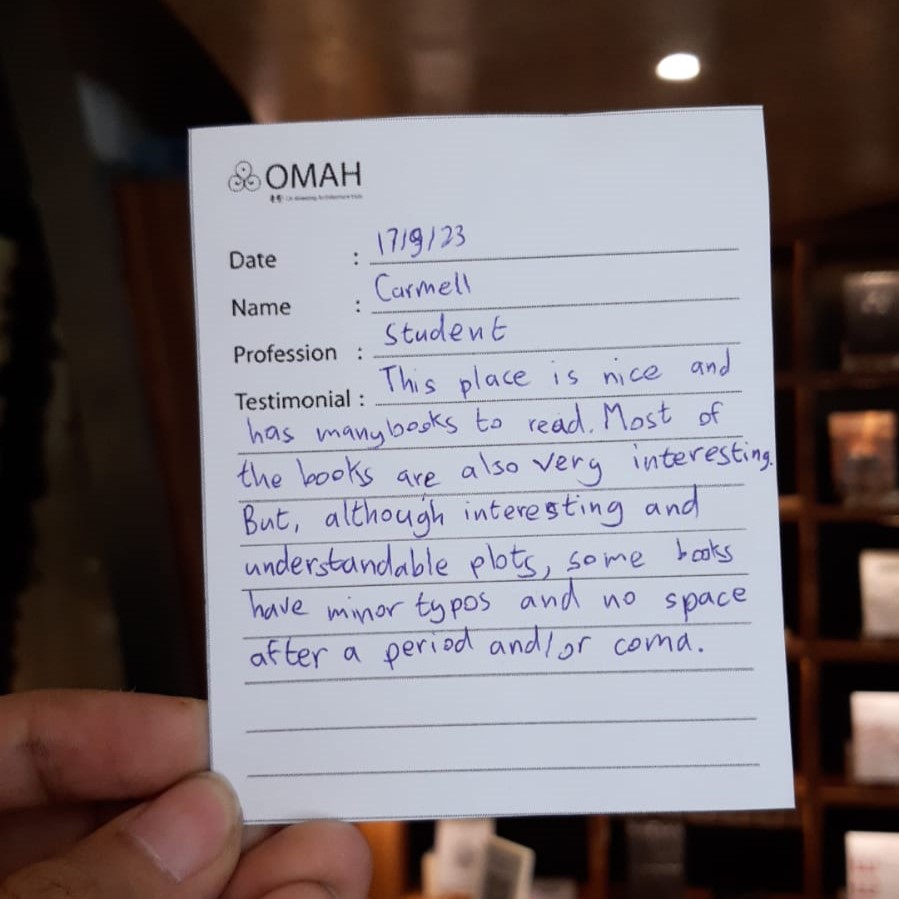 OMAH
Date : 17/9/23
Name : Carmell
Profession : Student
Testimonial : This place is nice and
has many books to read. Most of
the books are also very interesting.
But, although interesting and
understandable plots, some books
have minor typos and no space
after a period and/or coma.